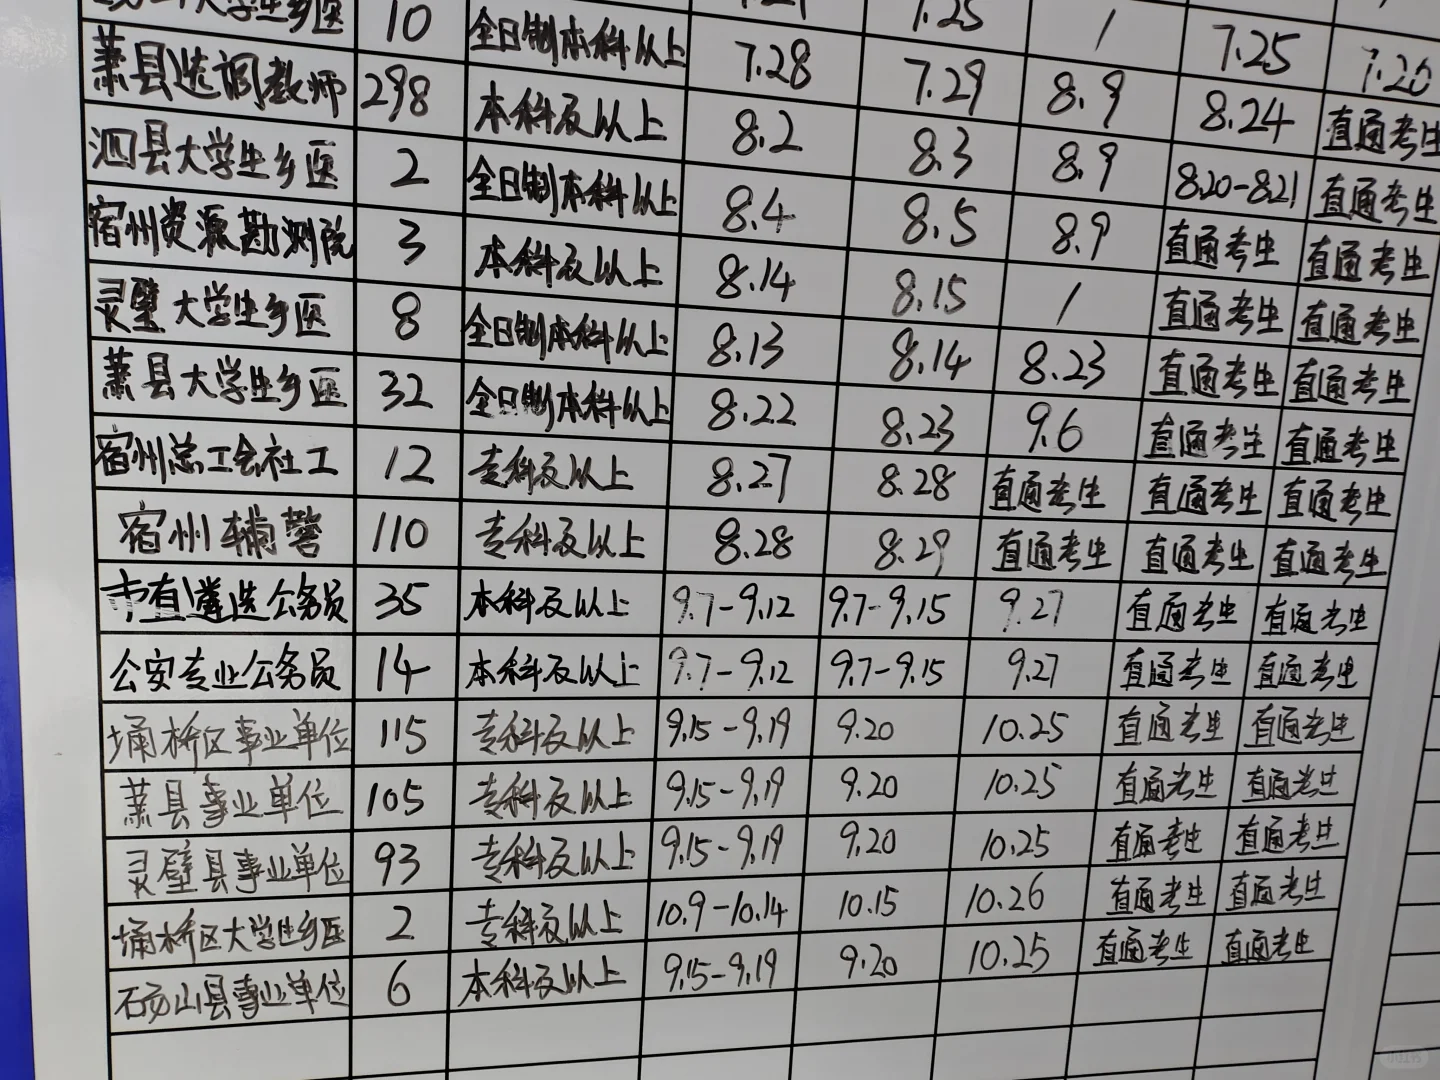 7.25 / 7.25 7.26
大学生乡医 10 全日制本科以上 7.28 7.29 8.9 8.24 直通考生
萧县选调教师 298 本科及以上 8.2 8.3 8.9 8.20-8.21 直通考生
泗县大学生乡医 2 全日制本科以上 8.4 8.5 8.9 直通考生 直通考生
宿州资源勘测院 3 本科及以上 8.14 8.15 / 直通考生 直通考生
灵璧大学生乡医 8 全日制本科以上 8.13 8.14 8.23 直通考生 直通考生
萧县大学生乡医 32 全日制本科以上 8.22 8.23 9.6 直通考生 直通考生
宿州总工会社工 12 专科及以上 8.27 8.28 直通考生 直通考生 直通考生
宿州辅警 110 专科及以上 8.28 8.29 直通考生 直通考生 直通考生
市直遴选公务员 35 本科及以上 9.7-9.12 9.7-9.15 9.27 直通考生 直通考生
公安专业公务员 14 本科及以上 9.7-9.12 9.7-9.15 9.27 直通考生 直通考生
埇桥区事业单位 115 专科及以上 9.15-9.19 9.20 10.25 直通考生 直通考生
萧县事业单位 105 专科及以上 9.15-9.19 9.20 10.25 直通考生 直通考生
灵璧县事业单位 93 专科及以上 9.15-9.19 9.20 10.25 直通考生 直通考生
埇桥区大学生乡医 2 专科及以上 10.9-10.14 10.15 10.26 直通考生 直通考生
砀山县事业单位 6 本科及以上 9.15-9.19 9.20 10.25 直通考生 直通考生